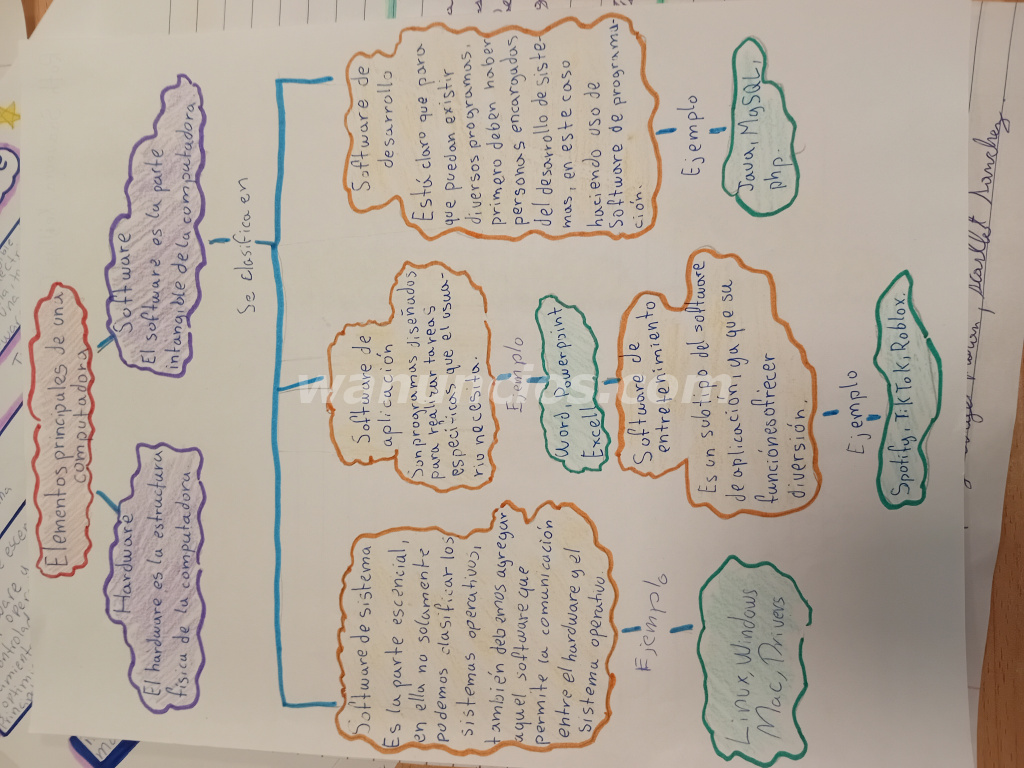 Elementos principales de una
computadora
Hardware
El hardware es la estructura
física de la computadora
Software
El software es la parte
intangible de la computadora
Se clasifica en
Software de sistema
Es la parte escencial,
en ella no solamente
podemos clasificar los
sistemas operativo,
también debemos agregar
aquel software que
permite la comunicación
entre el hardware y el
sistema operativo
Ejemplo
Linux, Windows
Mac, Drivers
Software de
aplicación
Son programas diseñados
para realizar tareas
especificas que el usua-
rio necesita.
Ejemplo
Word, Powerpoint
Excell
Software de
entretenimiento
Es un subtipo del software
de aplicación, ya que su
función es ofrecer
diversión.
Ejemplo
Spotify, TikTok, Roblox.
Software de
desarrollo
Está claro que para
que puedan existir
diversos programas,
primero deben haber
personas encargadas
del desarrollo de siste-
mas, en este caso
haciendo uso de
software de programa-
ción.
Ejemplo
Java, MySQL,
php.
wanuncios.com